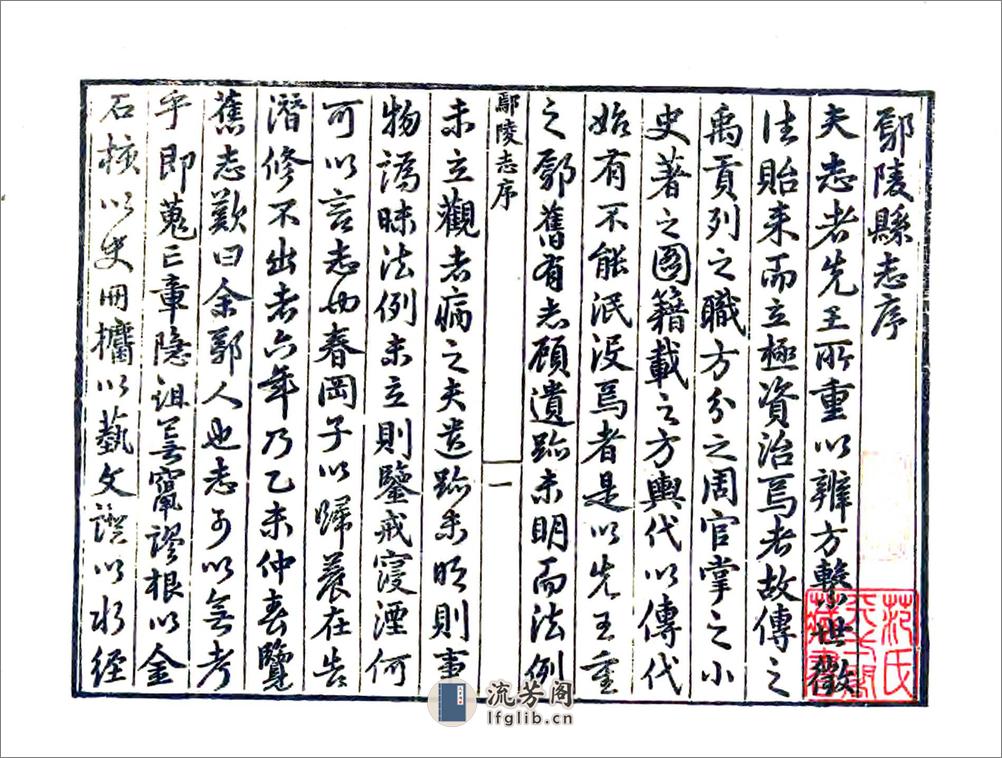 鄢陵縣志序
夫志者先王所重以辨方繫世徵
往貽来而立極資治焉者故傳之
禹貢列之職方分之周官掌之小
史著之圖籍載之方輿代以傳代
始有不能泯没焉者是以先王重
之鄢舊有志顧遺跡未明而法例
鄢陵志序
一
未立觀者病之夫遺跡未明則事
物譌昧法例未立則鑒戒寖湮何
可以言志也春岡子以歸養在告
潛修不出者六年乃乙未仲春覽
舊志歎曰余鄢人也志可以無考
乎即蒐亡章隐竄謬根以金
石核以史冊攟以藝文證以水經
范氏
天一閣
藏書
流芳阁
lfglib.cn